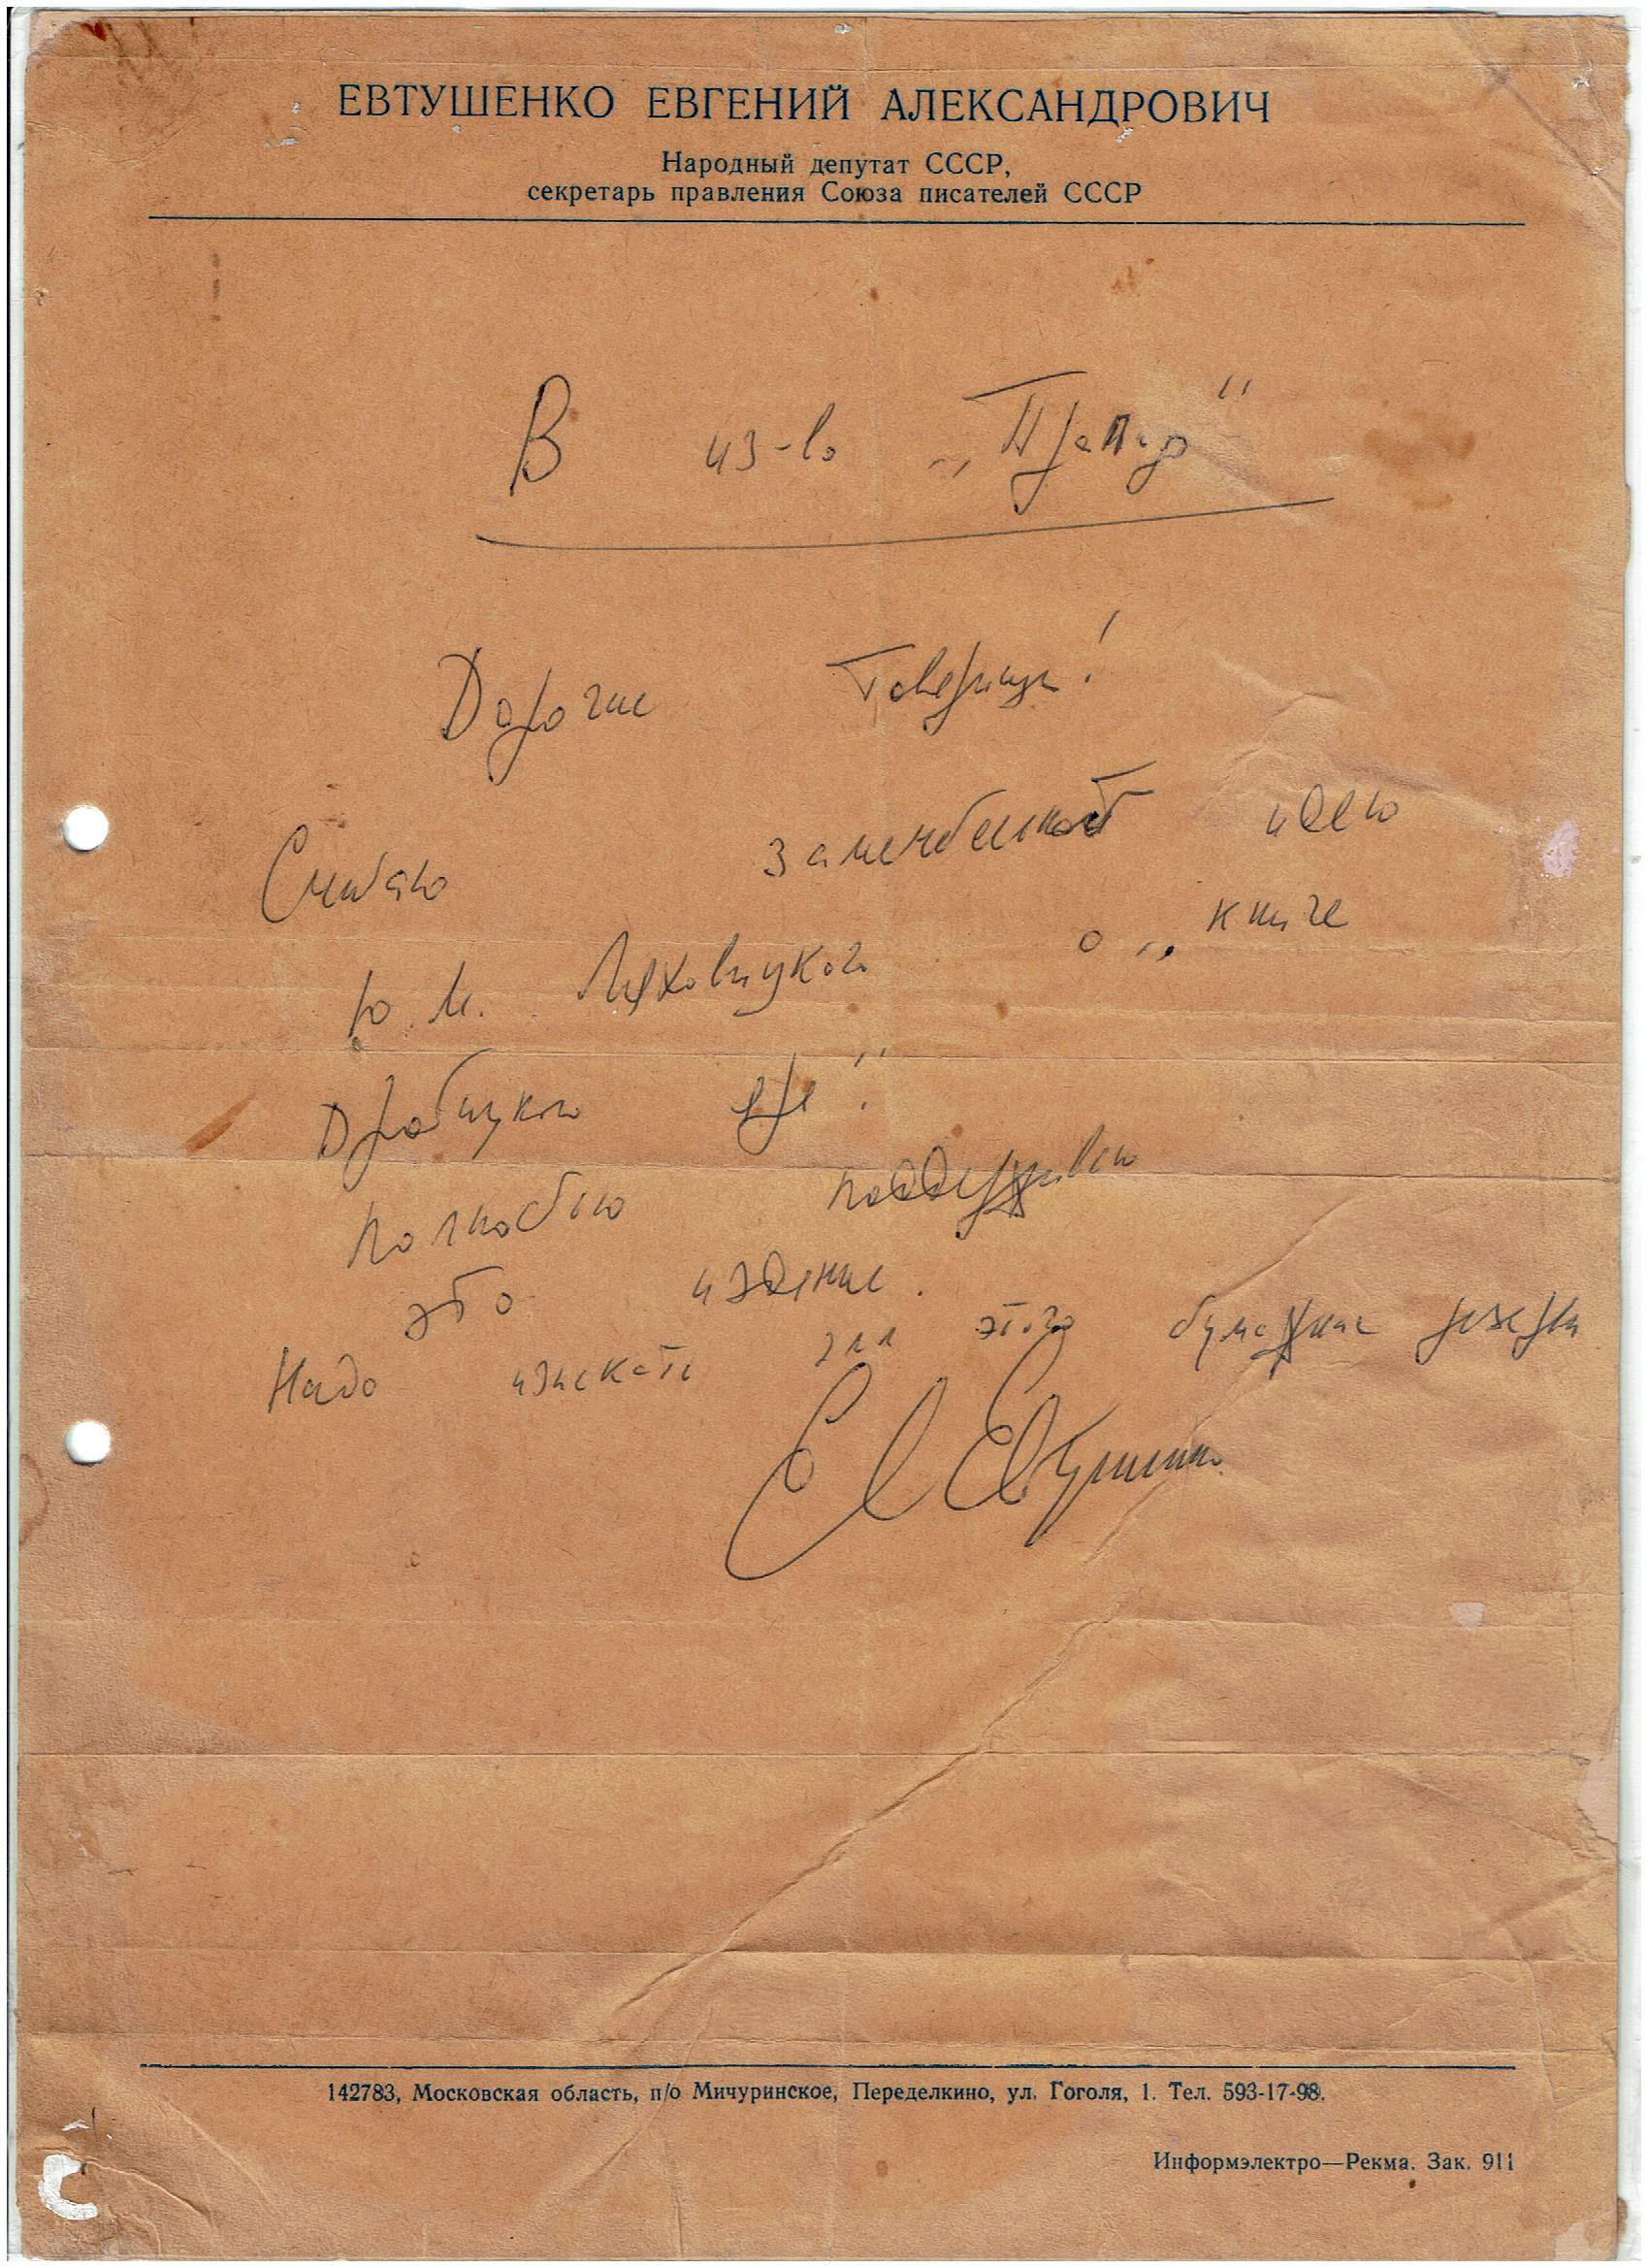 ЕВТУШЕНКО ЕВГЕНИЙ АЛЕКСАНДРОВИЧ
Народный депутат СССР,
секретарь правления Союза писателей СССР
В из-во „Прапор“
Дорогие товарищи!
Считаю замечательной идею
Ю. М. Ляховицкого о „книге
Дробицкого яра“.
Полностью поддерживаю
это издание.
Надо изыскать для этого бумажные резервы
Евг Евтушенко
142783, Московская область, п/о Мичуринское, Переделкино, ул. Гоголя, 1. Тел. 593-17-98.
Информэлектро—Рекма. Зак. 911